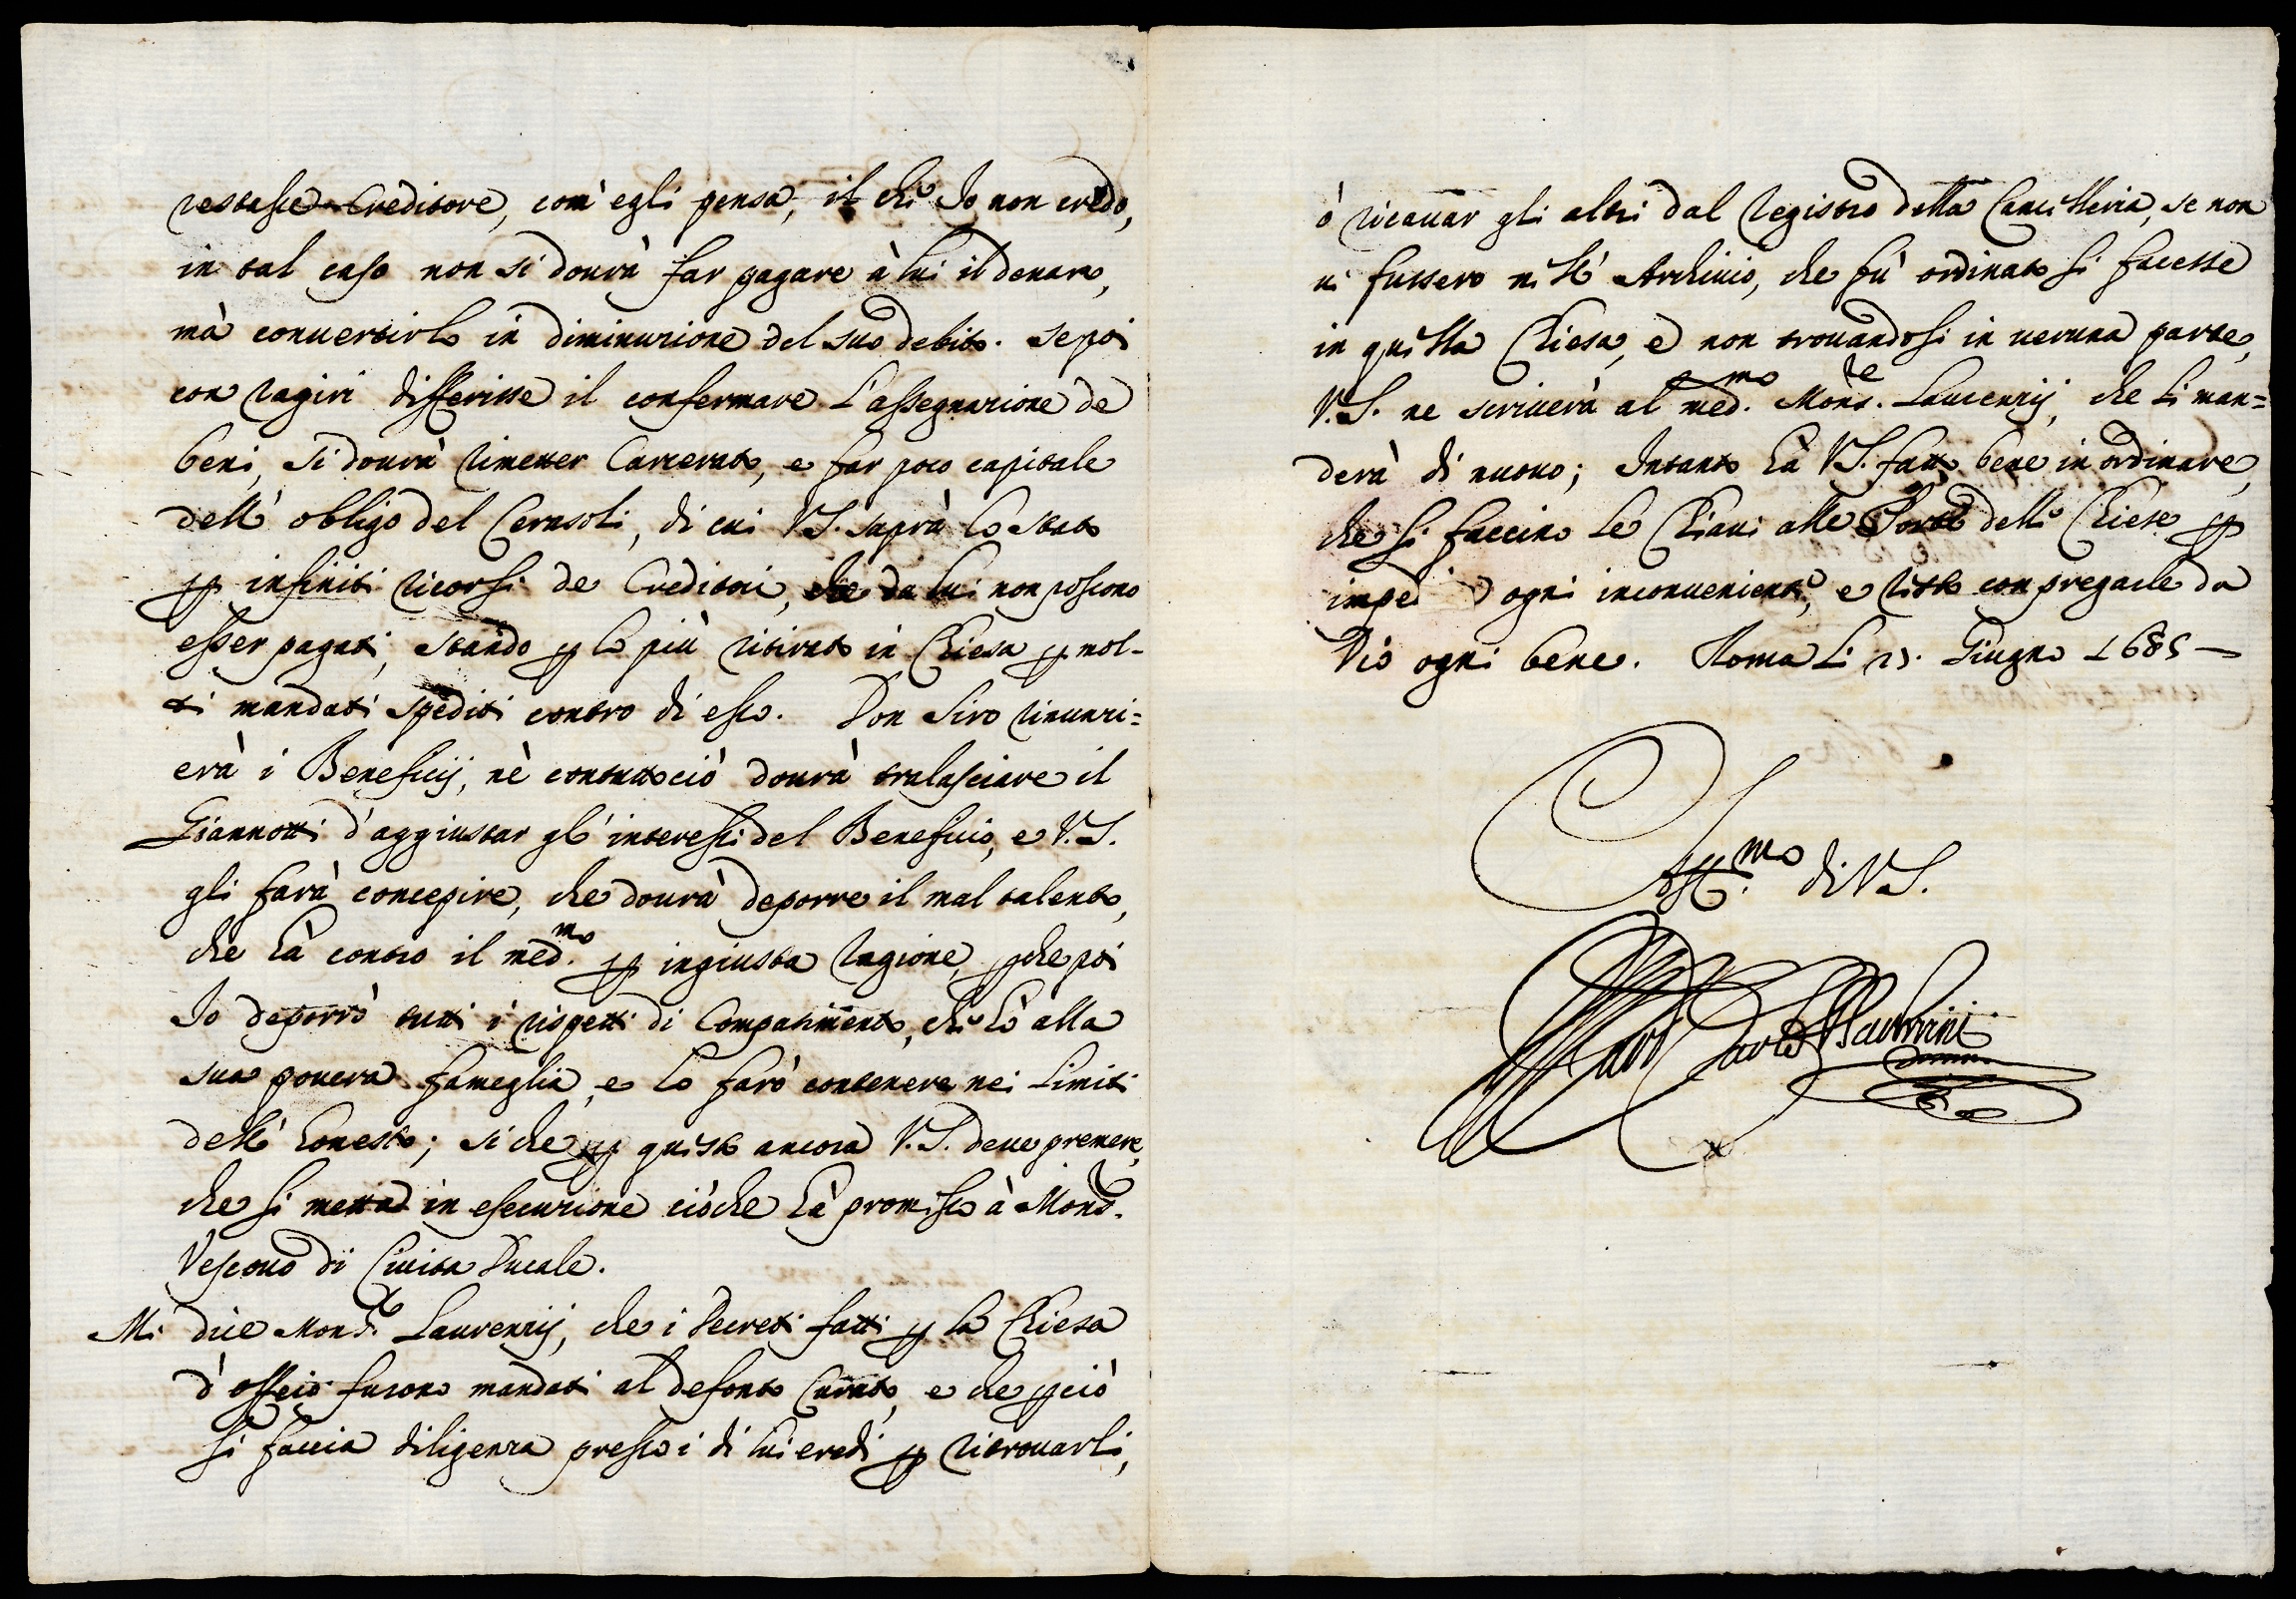 restasse Creditore, com'egli pensa, il che Io non credo,
in tal caso non si dourà far pagare à lui il denaro,
mà conuertirlo in diminuzione del suo debito. Se poi
con ragiri differisse il confermare l'assegnazione de
beni, si dourà rimetter Carcerato, e far poco capitale
dell'obligo del Cerasoli, di cui V.S. saprà lo stato
p infiniti ricorsi de Creditori, che da lui non possono
esser pagati, stando p lo più ritirato in Chiesa p mol-
ti mandati spediti contro di esso. Don Siro rinunzi=
erà i Beneficij, nè contuttociò dourà tralasciare il
Giannotti d'aggiustar gl'interessi del Beneficio, e V.S.
gli farà concepire, che dourà deporre il mal talento,
che hà contro il med.mo p ingiusta ragione, pche poi
Io deporrò tutti i rispetti di Compatimento, che hò alla
sua pouera fameglia, e lo farò contenere nei limiti
dell'honesto; si che p questo ancora V.S. deue premere,
che si metta in esecuzione ciò che hà promesso à Mons.r
Vescouo di Ciuita Ducale.
Mi dice Mons.r Laurenzij, che i Decreti fatti p la Chiesa
d'Offeio furono mandati al defonto Curato, e che pciò
si faccia diligenza presso i di lui eredi p ritrouarli,
ò ricauar gli altri dal Registro della Cancelleria, se non
ui fussero nell'Archiuio, che fù ordinato si facesse
in quella Chiesa, e non trouandosi in ueruna parte,
V.S. ne scriuerà al med.mo Mons.re Laurenzij, che li man=
derà di nuouo; Intanto hà V.S. fatto bene in ordinare,
che si faccino le Chiaui alle Porte delle Chiese p
imped ogni inconueniente, e resto con pregarle da
Dio ogni bene. Roma li 23. Giugno 1685
Aff.mo di V.S.